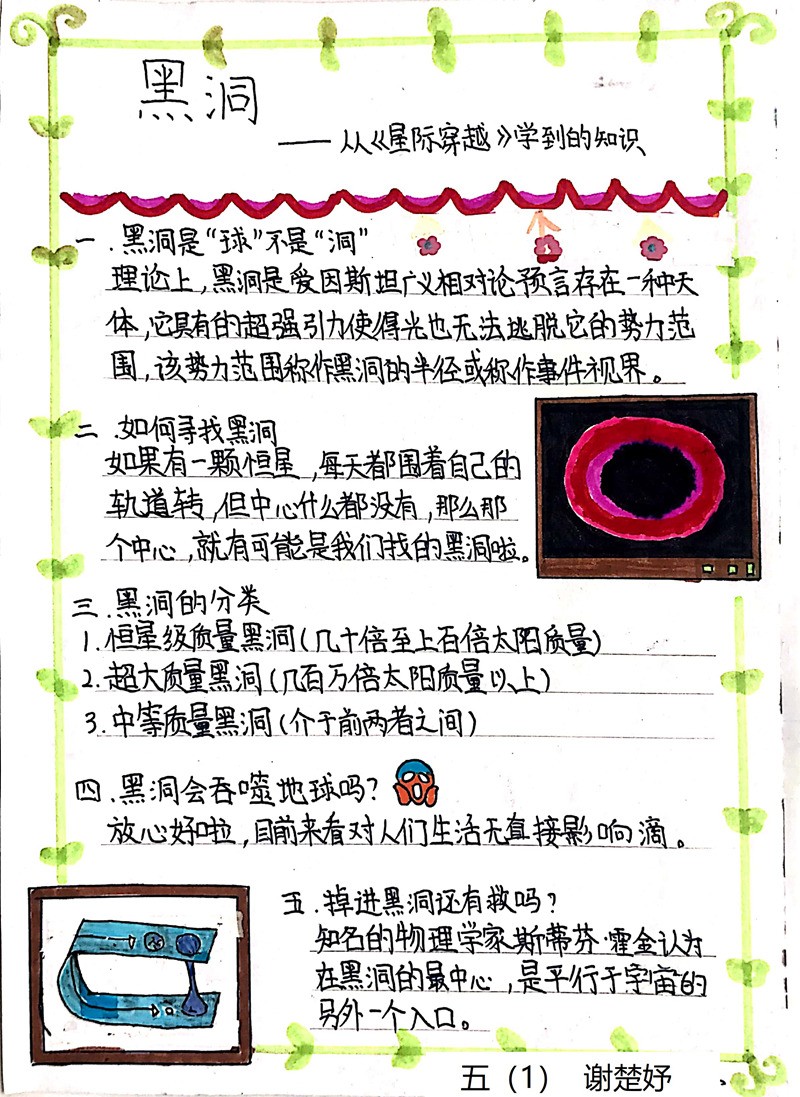 黑洞
——从《星际穿越》学到的知识
一.黑洞是“球”不是“洞”
理论上,黑洞是爱因斯坦广义相对论预言存在一种天
体,它具有的超强引力使得光也无法逃脱它的势力范
围,该势力范围称作黑洞的半径或称作事件视界。
二.如何寻找黑洞
如果有一颗恒星,每天都围着自己的
轨道转,但中心什么都没有,那么那
个中心,就有可能是我们找的黑洞啦。
三.黑洞的分类
1.恒星级质量黑洞(几十倍至上百倍太阳质量)
2.超大质量黑洞(几百万倍太阳质量以上)
3.中等质量黑洞(介于前两者之间)
四.黑洞会吞噬地球吗?
放心好啦,目前来看对人们生活无直接影响滴。
五.掉进黑洞还有救吗?
知名的物理学家斯蒂芬·霍金认为
在黑洞的最中心,是平行于宇宙的
另外一个入口。
五（1） 谢楚妤